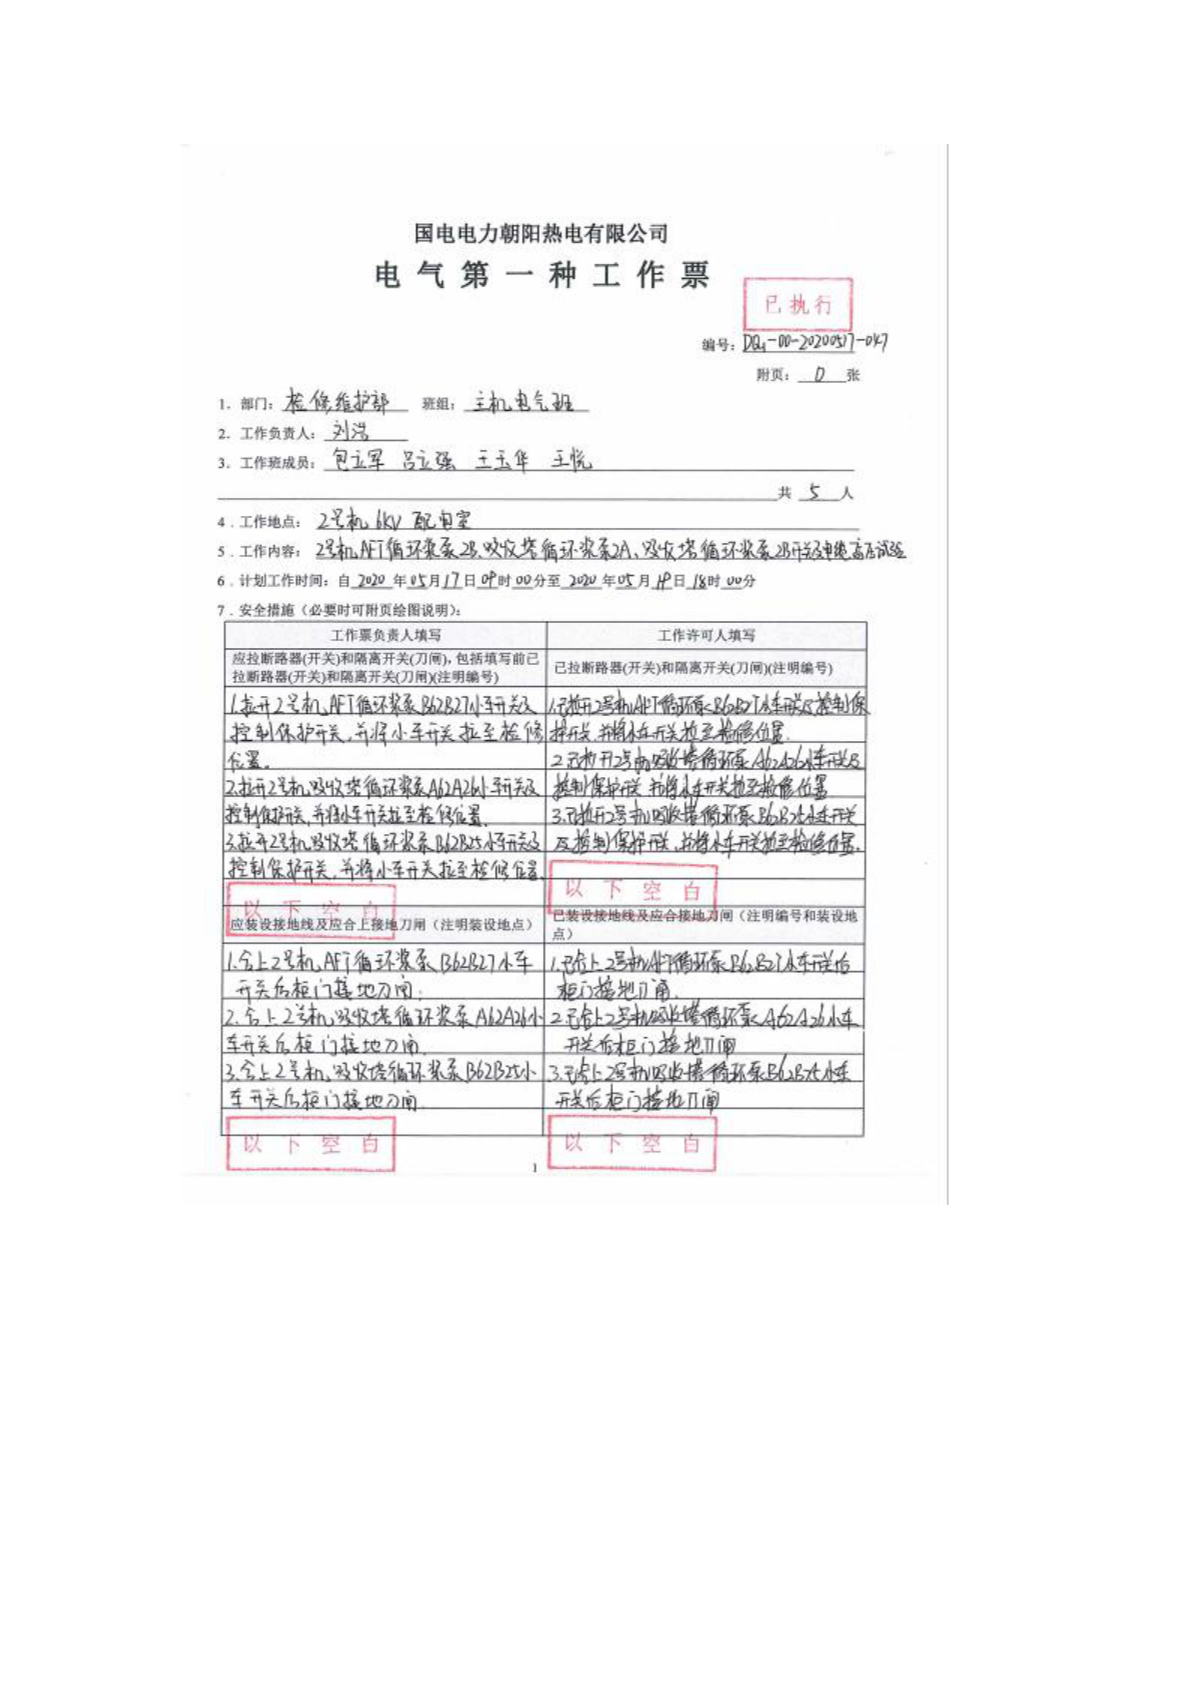 国电电力朝阳热电有限公司
电气第一种工作票
已执行
编号：DQ1-00-20200517-047
附页：0张
1．部门：检修维护部 班组：主机电气班
2．工作负责人：刘浩
3．工作班成员：包立军 吕立强 王玉华 王悦
共 5 人
4．工作地点：2号机6KV配电室
5．工作内容：2号机AFT循环浆泵2B、吸收塔循环浆泵2A、吸收塔循环浆泵2B开关及电缆高压试验
6．计划工作时间：自2020年05月17日09时00分至2020年05月19日18时00分
7．安全措施（必要时可附页绘图说明）：
工作票负责人填写 工作许可人填写
应拉断路器(开关)和隔离开关(刀闸)，包括填写前已
拉断路器(开关)和隔离开关(刀闸)(注明编号)
已拉断路器(开关)和隔离开关(刀闸)(注明编号)
1.拉开2号机AFT循环浆泵B62B27小车开关及
控制保护开关，并将小车开关拉至检修
位置。
2.拉开2号机吸收塔循环浆泵A62A26小车开关及
控制保护开关，并将小车开关拉至检修位置.
3.拉开2号机吸收塔循环浆泵B62B25小车开关及
控制保护开关，并将小车开关拉至检修位置.
以下空白
1.已拉开2号机AFT循环泵B62B27小车开关及控制保
护开关，并将小车开关拉至检修位置.
2.已拉开2号机吸收塔循环泵A62A26小车开关及
控制保护开关，并将小车开关拉至检修位置
3.已拉开2号机吸收塔循环泵B62B25小车开关
及控制保护开关，并将小车开关拉至检修位置.
以下空白
应装设接地线及应合上接地刀闸（注明装设地点）
已装设接地线及应合接地刀闸（注明编号和装设地
点）
1.合上2号机AFT循环浆泵B62B27小车
开关后柜门接地刀闸；
2.合上2号机吸收塔循环浆泵A62A26小
车开关后柜门接地刀闸.
3.合上2号机吸收塔循环浆泵B62B25小
车开关后柜门接地刀闸.
以下空白
1.已合上2号机AFT循环泵B62B27小车开关后
柜门接地刀闸.
2.已合上2号机吸收塔循环泵A62A26小车
开关后柜门接地刀闸
3.已合上2号机吸收塔循环泵B62B25小车
开关后柜门接地刀闸
以下空白
1